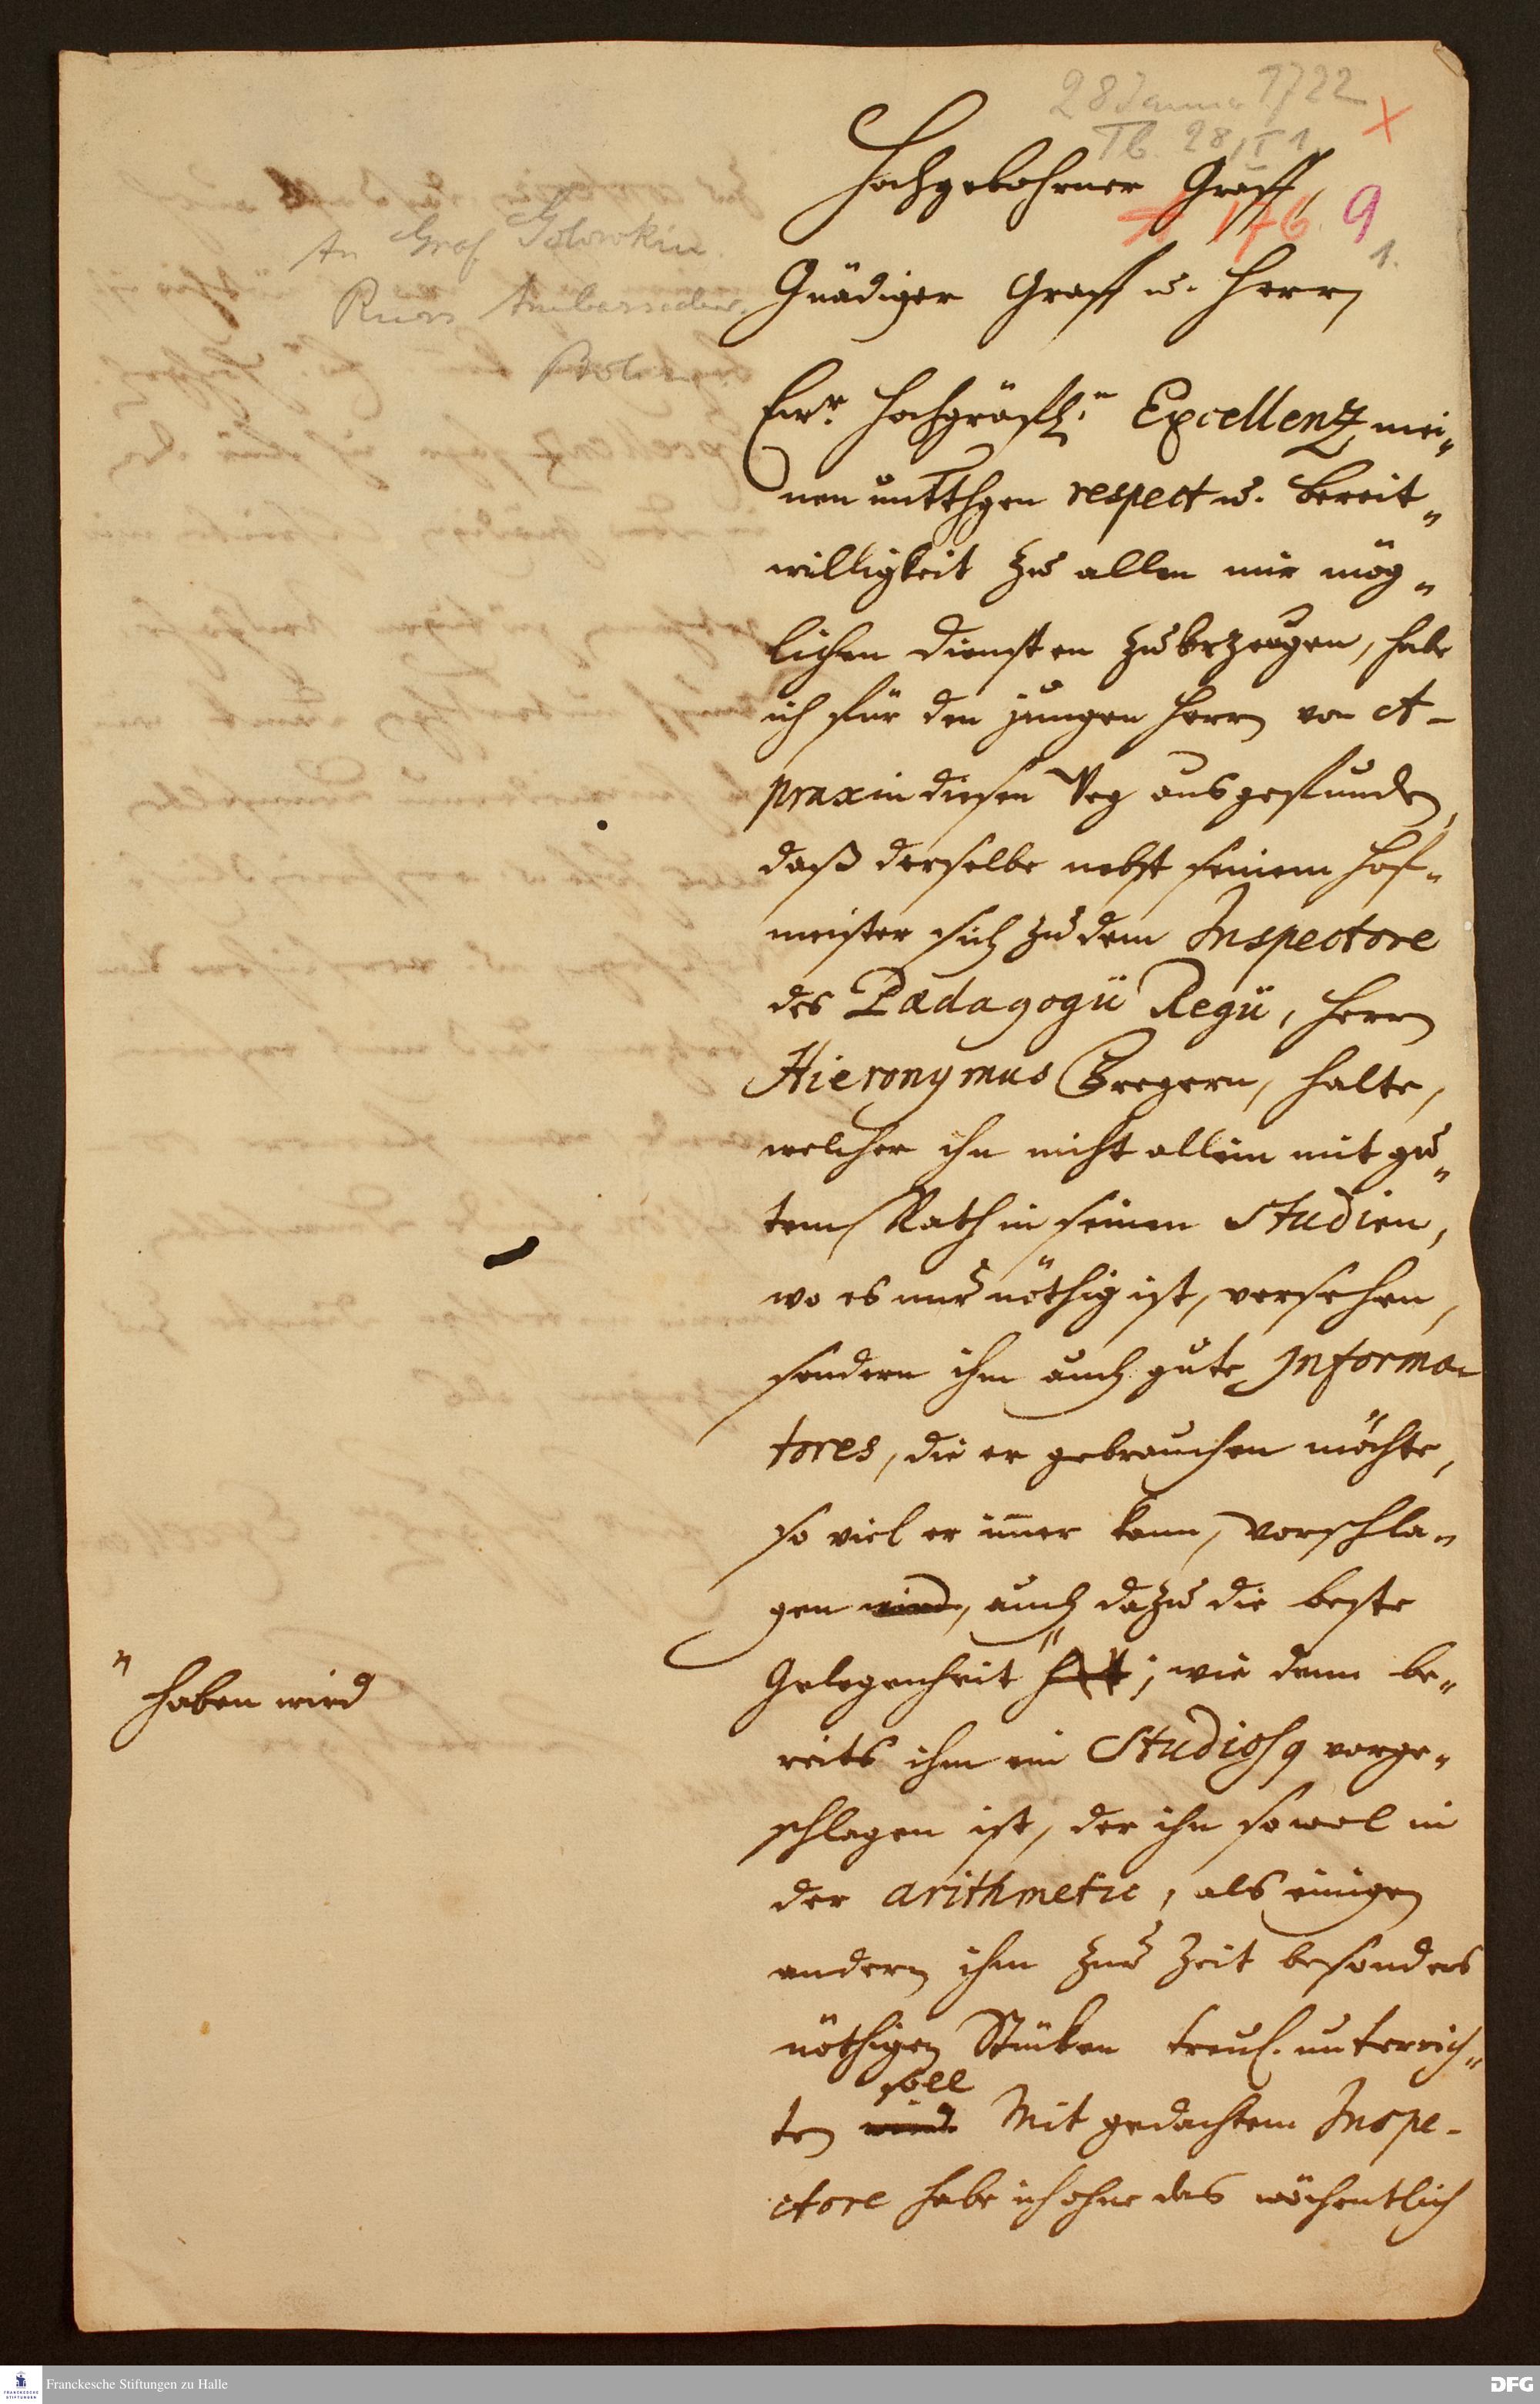 28 Januar 1722
Tb. 28/I 1
176. 9
1.
An Graf Golowkin
Russ Ambassadeur
Berlin
Hochgebohrner Graff,
Gnädiger Graff u. Herr,
Ewr. Hochgräfl.n Excellenz mei„
nen untthgen respect u. bereit„
willigkeit zu allen mir mög„
lichen diensten zu bezeugen, habe
ich für den jungen Herrn von A-
praxin diesen Weg ausgefunden,
daß derselbe nebst seinem Hof„
meister sich zu dem Inspectore
des Pædagogii Regii, Herrn
Hieronymus Freyern, halte,
welcher ihn nicht allein mit gu„
tem Rath in seinen Studien,
wo es nur nöthig ist, versehen,
sondern ihm auch gute Informa-
tores, die er gebrauchen möchte,
so viel er im̅er kann, vorschla„
gen wird, auch dazu die beste
Gelegenheit " hat; wie denn be„
" haben wird
reits ihm ein Studiosq vorge„
schlagen ist, der ihn sowol in
der arithmetic, als einigen
andern ihm zur Zeit besonders
nöthigen Stücken treul. unterrich„
soll
ten wird. Mit gedachtem Inspe-
ctore habe ich ohne das wöchentlich
Franckesche Stiftungen zu Halle
DFG